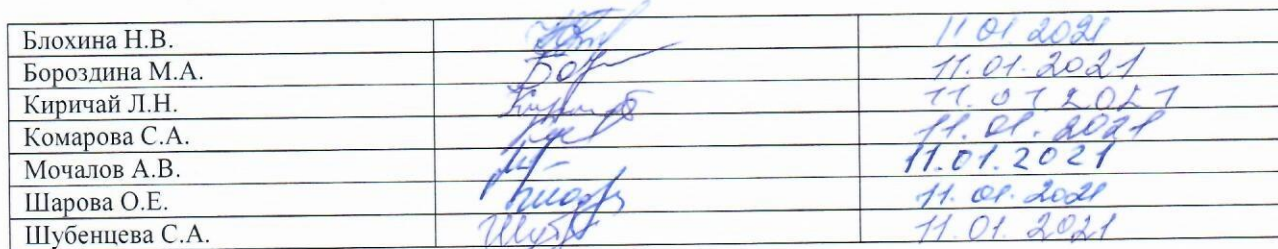 Блохина Н.В. 11 01 2021
Бороздина М.А. 11.01.2021
Киричай Л.Н. 11.01.2021
Комарова С.А. 11.01.2021
Мочалов А.В. 11.01.2021
Шарова О.Е. 11.01.2021
Шубенцева С.А. 11.01.2021